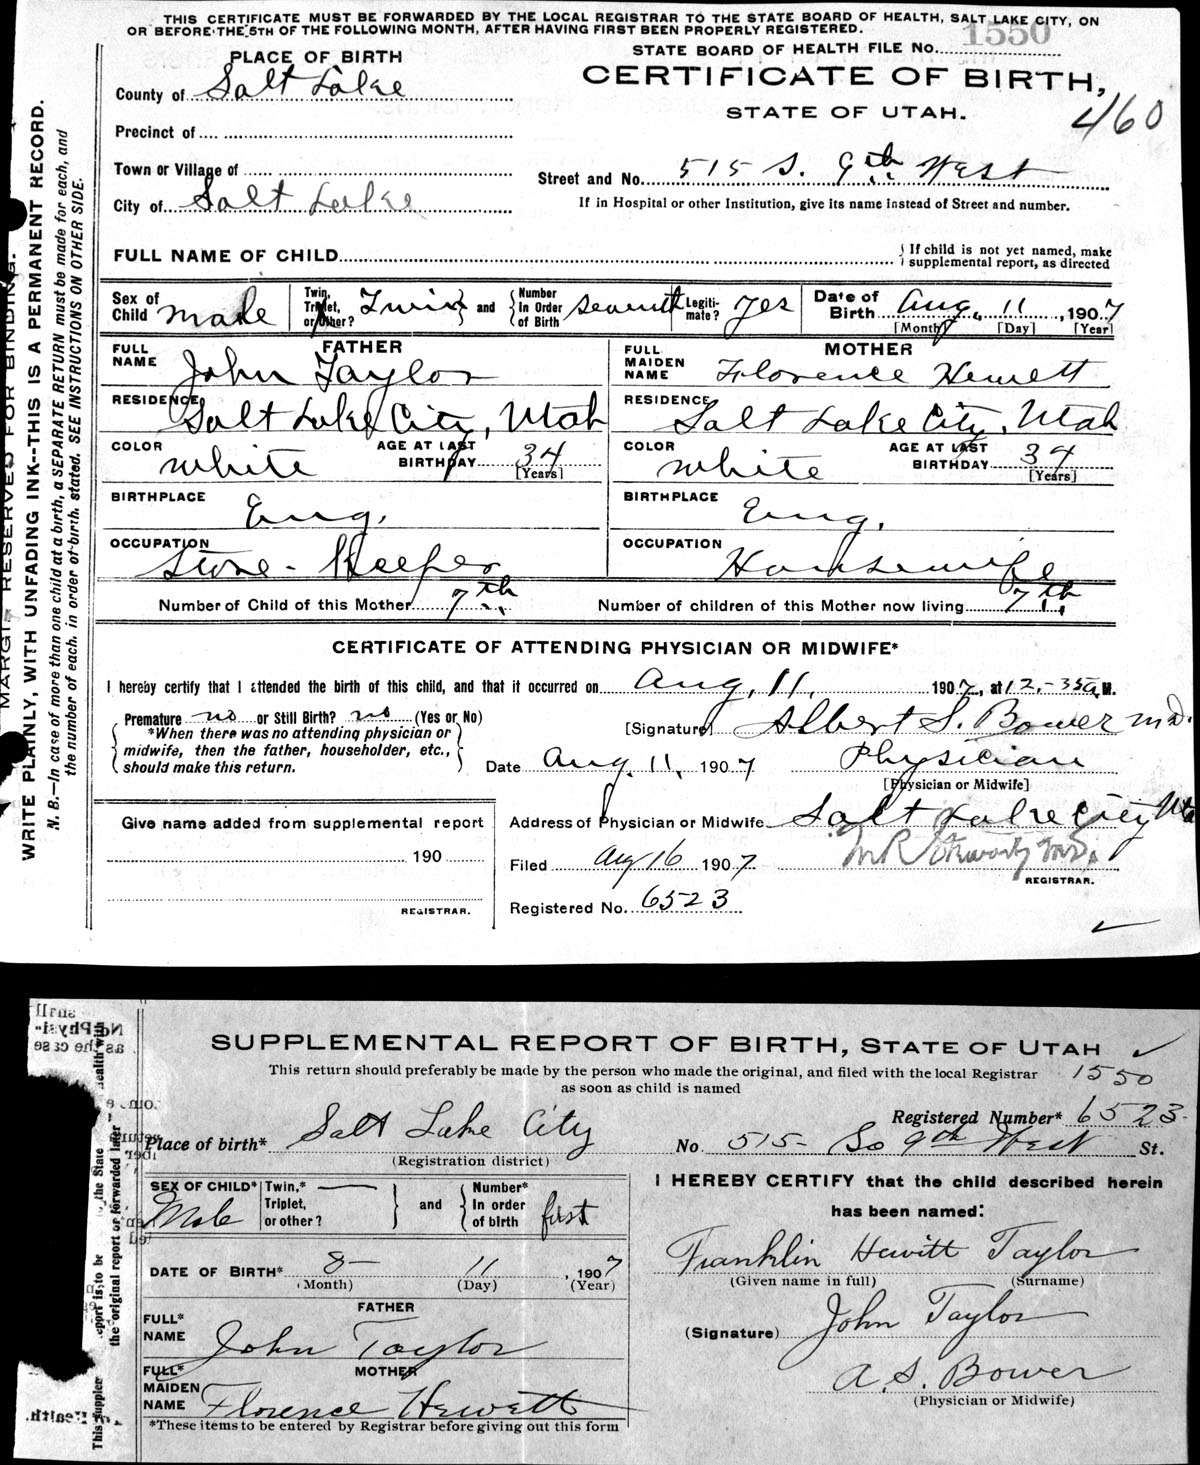 THIS CERTIFICATE MUST BE FORWARDED BY THE LOCAL REGISTRAR TO THE STATE BOARD OF HEALTH, SALT LAKE CITY, ON
OR BEFORE THE 5TH OF THE FOLLOWING MONTH, AFTER HAVING FIRST BEEN PROPERLY REGISTERED.
STATE BOARD OF HEALTH FILE No. 1550
PLACE OF BIRTH
CERTIFICATE OF BIRTH,
STATE OF UTAH.
460
County of Salt Lake
Precinct of
Town or Village of
City of Salt Lake
Street and No. 515 S. 9th West
If in Hospital or other Institution, give its name instead of Street and number.
FULL NAME OF CHILD
If child is not yet named, make
supplemental report, as directed
Sex of Child Male
Twin, Triplet, or Other? Twin and
Number In Order of Birth seventh
Legiti-mate? Yes
Date of Birth Aug. 11, 1907
[Month] [Day] [Year]
FATHER
FULL NAME John Taylor
RESIDENCE Salt Lake City, Utah
COLOR White AGE AT LAST BIRTHDAY 34 [Years]
BIRTHPLACE Eng.
OCCUPATION Store-Keeper
MOTHER
FULL MAIDEN NAME Florence Hewett
RESIDENCE Salt Lake City, Utah
COLOR White AGE AT LAST BIRTHDAY 34 [Years]
BIRTHPLACE Eng.
OCCUPATION Housewife
Number of Child of this Mother 7th
Number of children of this Mother now living 7th
CERTIFICATE OF ATTENDING PHYSICIAN OR MIDWIFE*
I hereby certify that I attended the birth of this child, and that it occurred on Aug. 11, 1907, at 12-35 A.M.
Premature no or Still Birth? no (Yes or No)
*When there was no attending physician or
midwife, then the father, householder, etc.,
should make this return.
[Signature] Albert S. Bower MD.
Date Aug. 11, 1907 Physician
[Physician or Midwife]
Give name added from supplemental report
190
REGISTRAR.
Address of Physician or Midwife Salt Lake City Uta
Filed Aug 16 1907
REGISTRAR.
Registered No. 6523
MARGIN RESERVED FOR BINDING.
WRITE PLAINLY, WITH UNFADING INK--THIS IS A PERMANENT RECORD.
N. B.—In case of more than one child at a birth, a SEPARATE RETURN must be made for each, and
the number of each, in order of birth, stated. SEE INSTRUCTIONS ON OTHER SIDE.
SUPPLEMENTAL REPORT OF BIRTH, STATE OF UTAH
This return should preferably be made by the person who made the original, and filed with the local Registrar
as soon as child is named
1550
Registered Number* 6523
Place of birth* Salt Lake City No 515- So 9th West St.
(Registration district)
SEX OF CHILD* Male
Twin,* Triplet, or other? and
Number* In order of birth first
DATE OF BIRTH* 8- 11, 1907
(Month) (Day) (Year)
FATHER
FULL* NAME John Taylor
MOTHER
FULL* MAIDEN NAME Florence Hewett
*These items to be entered by Registrar before giving out this form
I HEREBY CERTIFY that the child described herein
has been named:
Franklin Hewitt Taylor
(Given name in full) (Surname)
(Signature) John Taylor
A. S. Bower
(Physician or Midwife)